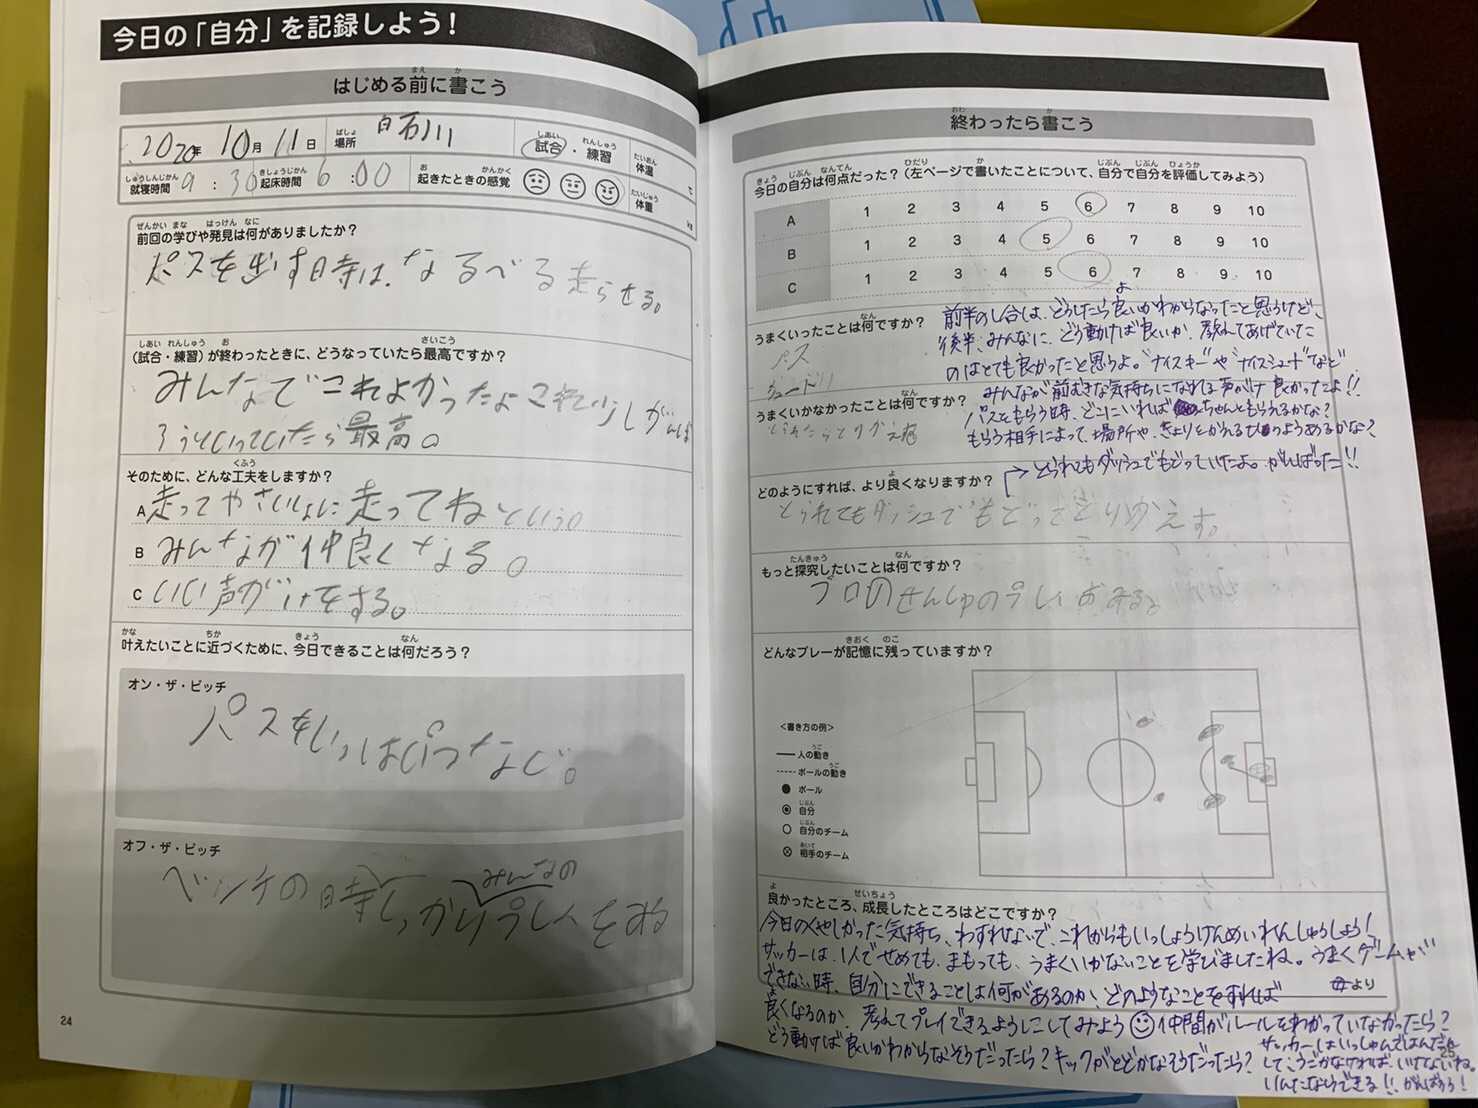 今日の「自分」を記録しよう!
はじめる前に書こう
2020年 10月 11日 場所 白石川 試合・練習 体温 ℃
就寝時間 9:30 起床時間 6:00 起きたときの感覚 体重 kg
前回の学びや発見は何がありましたか?
パスを出す時は、なるべる走らせる。
(試合・練習)が終わったときに、どうなっていたら最高ですか?
みんなでこれよかったよこれ少しがんば
ろうといっていたら最高。
そのために、どんな工夫をしますか?
A 走ってやさいしょに走ってねという。
B みんなが仲良くなる。
C いい声がけをする。
叶えたいことに近づくために、今日できることは何だろう?
オン・ザ・ピッチ
パスをいっぱいつなぐ。
オフ・ザ・ピッチ
みんなの
ベンチの時しっかりプレーをみる
24
終わったら書こう
今日の自分は何点だった?(左ページで書いたことについて、自分で自分を評価してみよう)
A 1 2 3 4 5 6 7 8 9 10
B 1 2 3 4 5 6 7 8 9 10
C 1 2 3 4 5 6 7 8 9 10
うまくいったことは何ですか?
パス
シュート
前半のし合は、どうしたら良いかわからなったと思うけど、
後半、みんなに、どう動けば良いか、教えてあげていたこ
のはとても良かったと思うよ。"ナイスキー"や"ナイスシュート"など
みんなが前むきな気持ちになれる声がけ良かったよ!!
うまくいかなかったことは何ですか?
とられたらとりかえす
パスをもらう時、どこにいればちゃんともらえるかな?
もらう相手によって、場所や、きょりをかえるひつようあるかな?
とられてもダッシュでもどっていたよ。がんばった!!
どのようにすれば、より良くなりますか?
とられてもダッシュでもどってとりかえす。
もっと探究したいことは何ですか?
プロのせんしゅのプレーをみる。
どんなプレーが記憶に残っていますか?
<書き方の例>
人の動き
ボールの動き
ボール
自分
自分のチーム
相手のチーム
良かったところ、成長したところはどこですか?
今日のくやしかった気持ち、わすれないで、これからもいっしょうけんめいれんしゅうしよう!
サッカーは、1人でせめても、まもっても、うまくいかないことを学びましたね。うまくゲームが
できない時、自分にできることは何があるのか、どのようなことをすれば
母より
良くなるのか、考えてプレイできるようにしてみよう 仲間がルールをわかっていなかったら?
どう動けば良いかわからなそうだったら?キックがとどかなそうだったら?
サッカーはいっしゅんではんだん
して、うごかなければ、いけないね。
りんたならできる!!がんばろう!
25